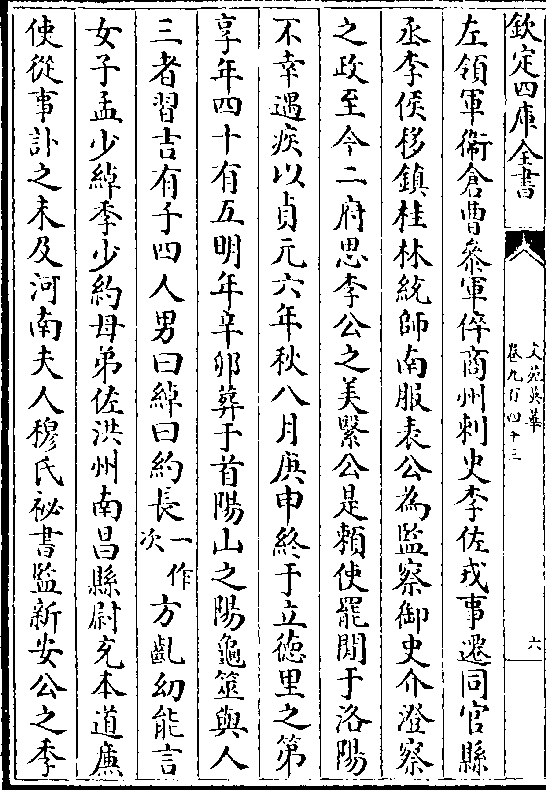 欽定四庫全書
文苑英華
卷九百四十三
六
左領軍衞倉曹參軍倅商州刺史李佐戎事遷同官縣
丞李侯移鎮桂林統師南服表公為監察御史介澄察
之政至今二府思李公之美緊公是賴使罷閒于洛陽
不幸遇疾以貞元六年秋八月庚申終于立德里之第
享年四十有五明年辛卯葬于首陽山之陽龜筮與人
三者習吉有子四人男曰綽曰約長一作次方齓幼能言
女子孟少綽季少約母弟佐洪州南昌縣尉充本道廉
使從事訃之未及河南夫人穆氏祕書監新安公之季